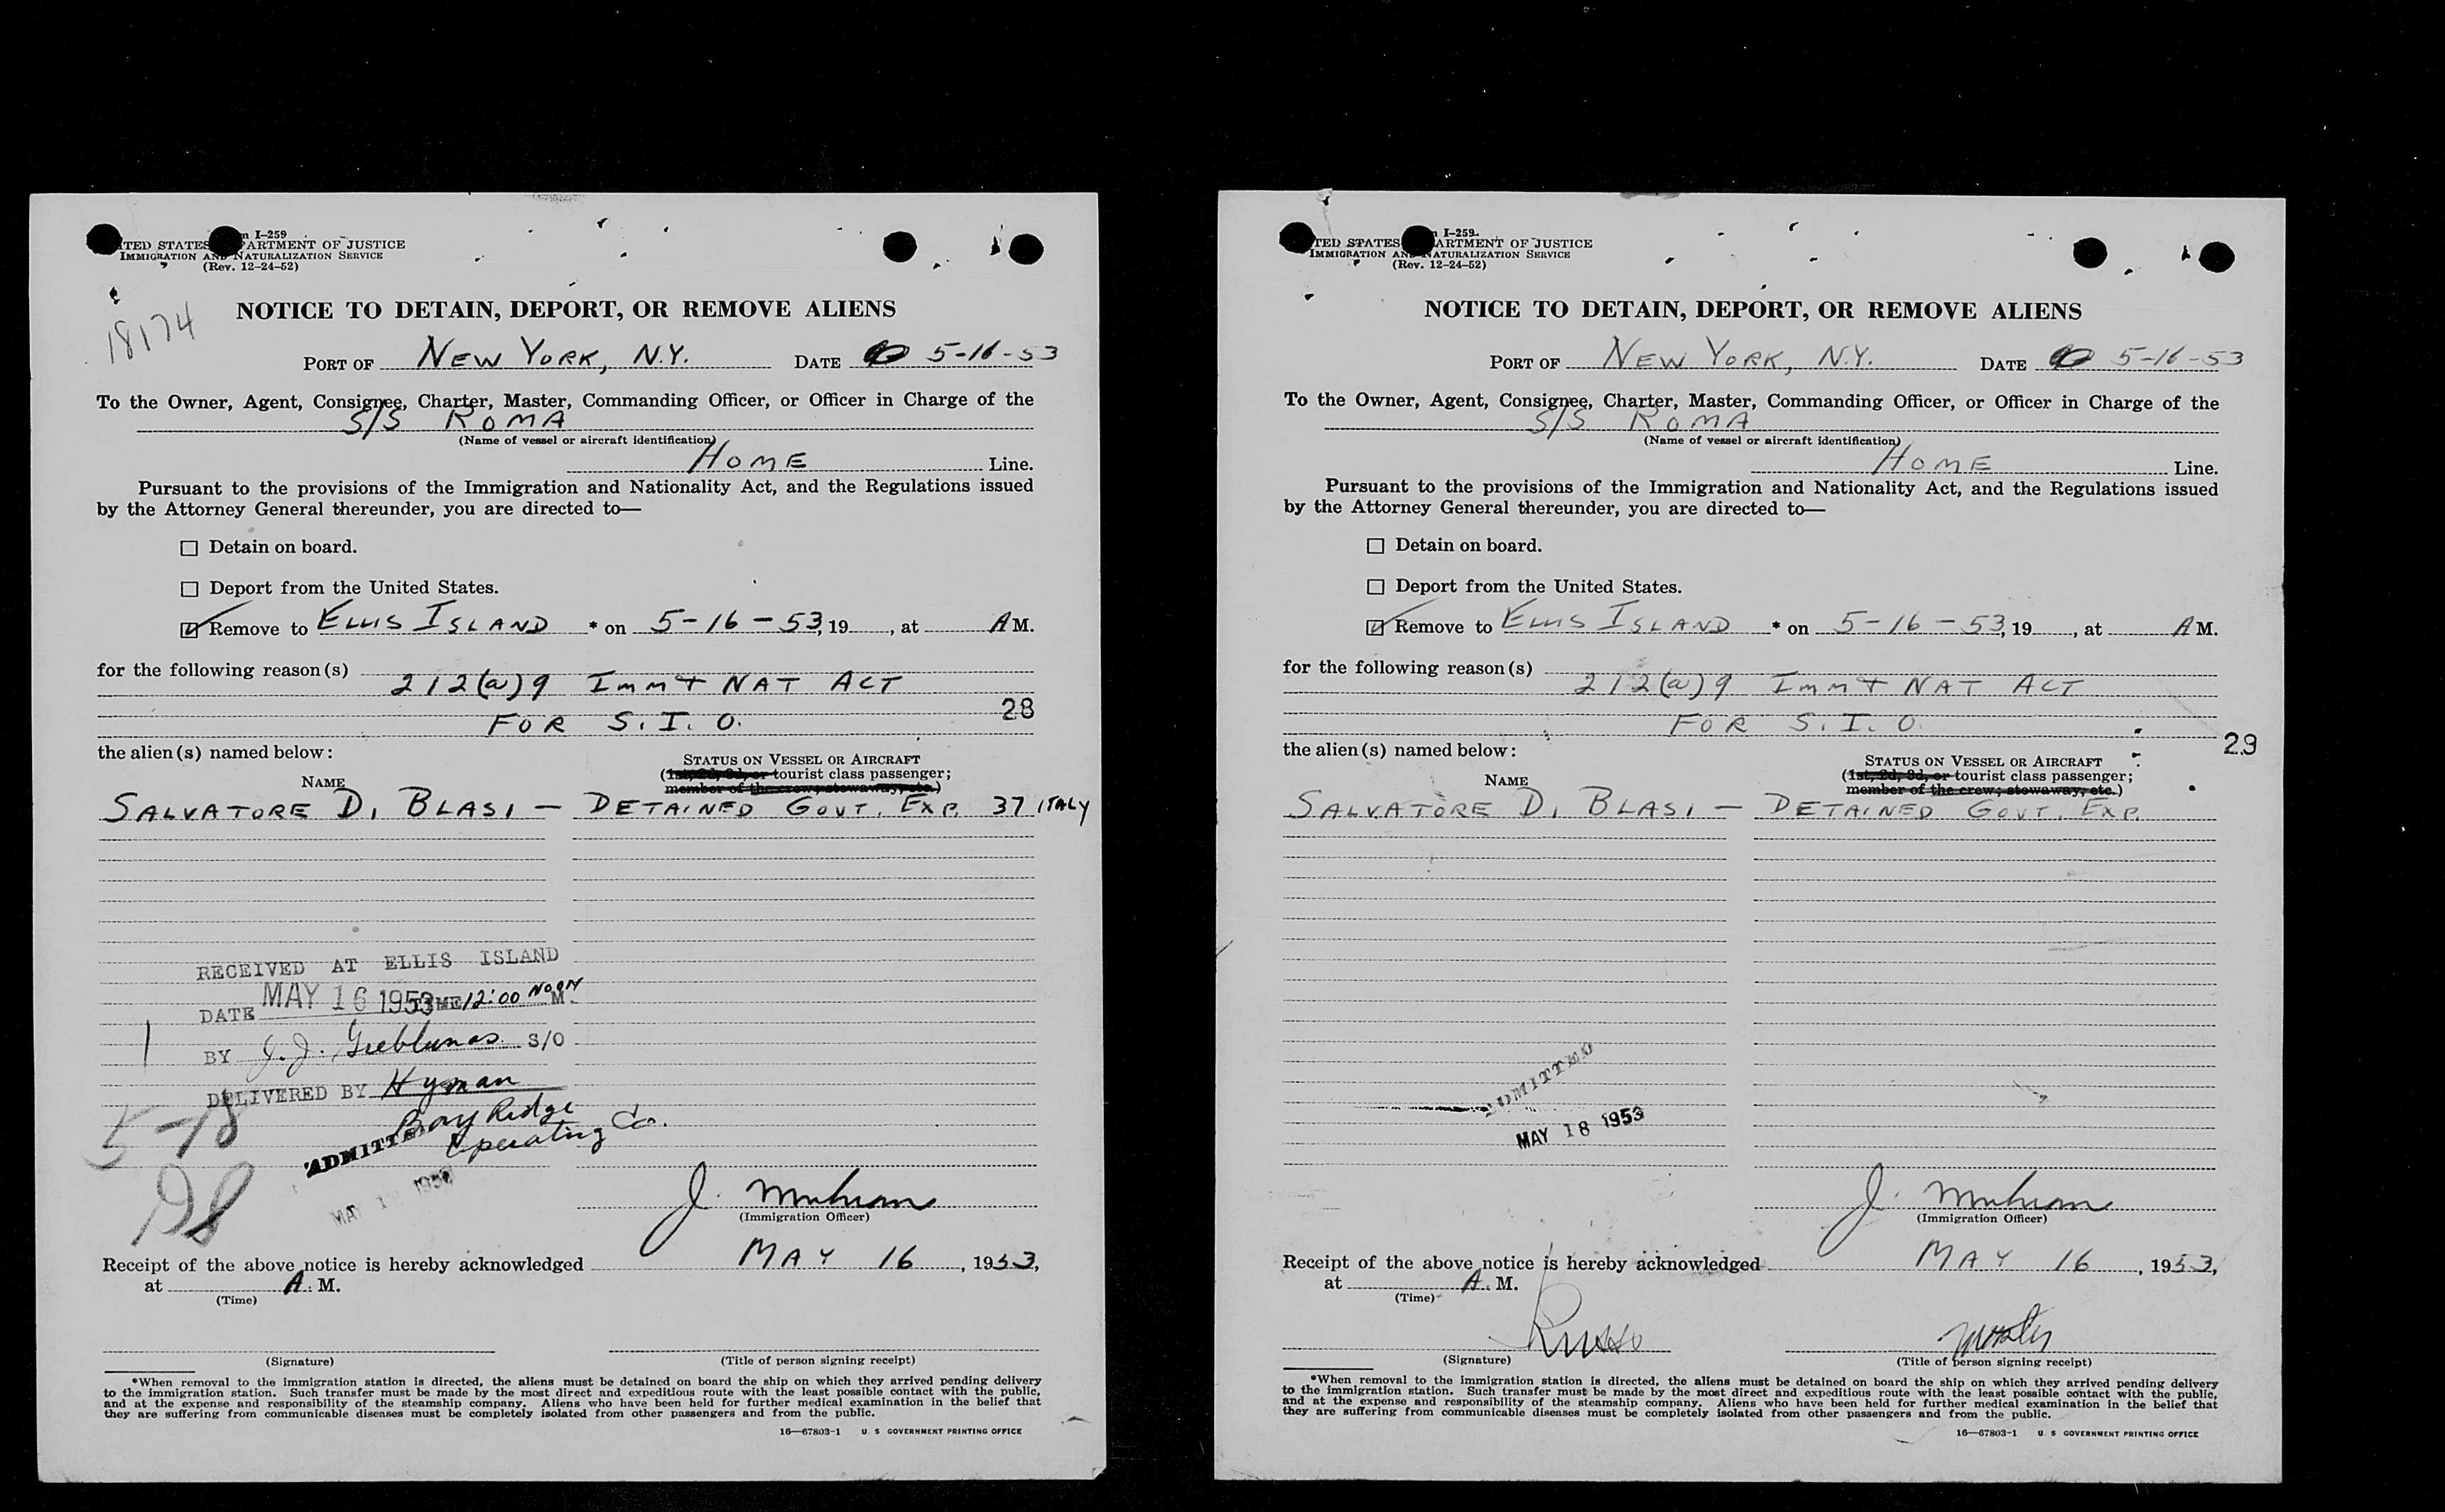 I-259
TED STATES PARTMENT OF JUSTICE
IMMIGRATION AND NATURALIZATION SERVICE
(Rev. 12-24-52)
18174
NOTICE TO DETAIN, DEPORT, OR REMOVE ALIENS
PORT OF NEW YORK, N.Y. DATE 5-16-53
To the Owner, Agent, Consignee, Charter, Master, Commanding Officer, or Officer in Charge of the
S/S ROMA
(Name of vessel or aircraft identification)
HOME Line.
Pursuant to the provisions of the Immigration and Nationality Act, and the Regulations issued
by the Attorney General thereunder, you are directed to—
☐ Detain on board.
☐ Deport from the United States.
☑ Remove to ELLIS ISLAND * on 5-16-53, 19 , at A M.
for the following reason(s)
212(a)9 Imm + NAT ACT
28
FOR S.I.O.
the alien(s) named below:
STATUS ON VESSEL OR AIRCRAFT
(1st, 2d, 3d, or tourist class passenger;
NAME
member of the crew; stowaway, etc.)
SALVATORE DI BLASI — DETAINED GOVT. EXP. 37 ITALY
RECEIVED AT ELLIS ISLAND
DATE MAY 16 1953 TIME 12:00 NOON M.
BY J.J. Greblunas S/O
DELIVERED BY Hyman
Bay Ridge
Operating Co.
5-18
ADMITTED
MAY 1 195
J.
(Immigration Officer)
Receipt of the above notice is hereby acknowledged MAY 16, 1953,
at A. M.
(Time)
(Signature) (Title of person signing receipt)
*When removal to the immigration station is directed, the aliens must be detained on board the ship on which they arrived pending delivery
to the immigration station. Such transfer must be made by the most direct and expeditious route with the least possible contact with the public,
and at the expense and responsibility of the steamship company. Aliens who have been held for further medical examination in the belief that
they are suffering from communicable diseases must be completely isolated from other passengers and from the public.
16—67803-1 U. S. GOVERNMENT PRINTING OFFICE
I-259
TED STATES ARTMENT OF JUSTICE
IMMIGRATION AND NATURALIZATION SERVICE
(Rev. 12-24-52)
NOTICE TO DETAIN, DEPORT, OR REMOVE ALIENS
PORT OF NEW YORK, N.Y. DATE 5-16-53
To the Owner, Agent, Consignee, Charter, Master, Commanding Officer, or Officer in Charge of the
S/S ROMA
(Name of vessel or aircraft identification)
HOME Line.
Pursuant to the provisions of the Immigration and Nationality Act, and the Regulations issued
by the Attorney General thereunder, you are directed to—
☐ Detain on board.
☐ Deport from the United States.
☑ Remove to ELLIS ISLAND * on 5-16-53, 19 , at A M.
for the following reason(s)
212(a)9 Imm + NAT ACT
FOR S.I.O.
29
the alien(s) named below:
STATUS ON VESSEL OR AIRCRAFT
(1st, 2d, 3d, or tourist class passenger;
NAME
member of the crew; stowaway, etc.)
SALVATORE DI BLASI — DETAINED GOVT. EXP.
ADMITTED
MAY 18 1953
J.
(Immigration Officer)
Receipt of the above notice is hereby acknowledged MAY 16, 1953,
at A. M.
(Time)
Russo
(Signature) (Title of person signing receipt)
*When removal to the immigration station is directed, the aliens must be detained on board the ship on which they arrived pending delivery
to the immigration station. Such transfer must be made by the most direct and expeditious route with the least possible contact with the public,
and at the expense and responsibility of the steamship company. Aliens who have been held for further medical examination in the belief that
they are suffering from communicable diseases must be completely isolated from other passengers and from the public.
16—67803-1 U. S. GOVERNMENT PRINTING OFFICE